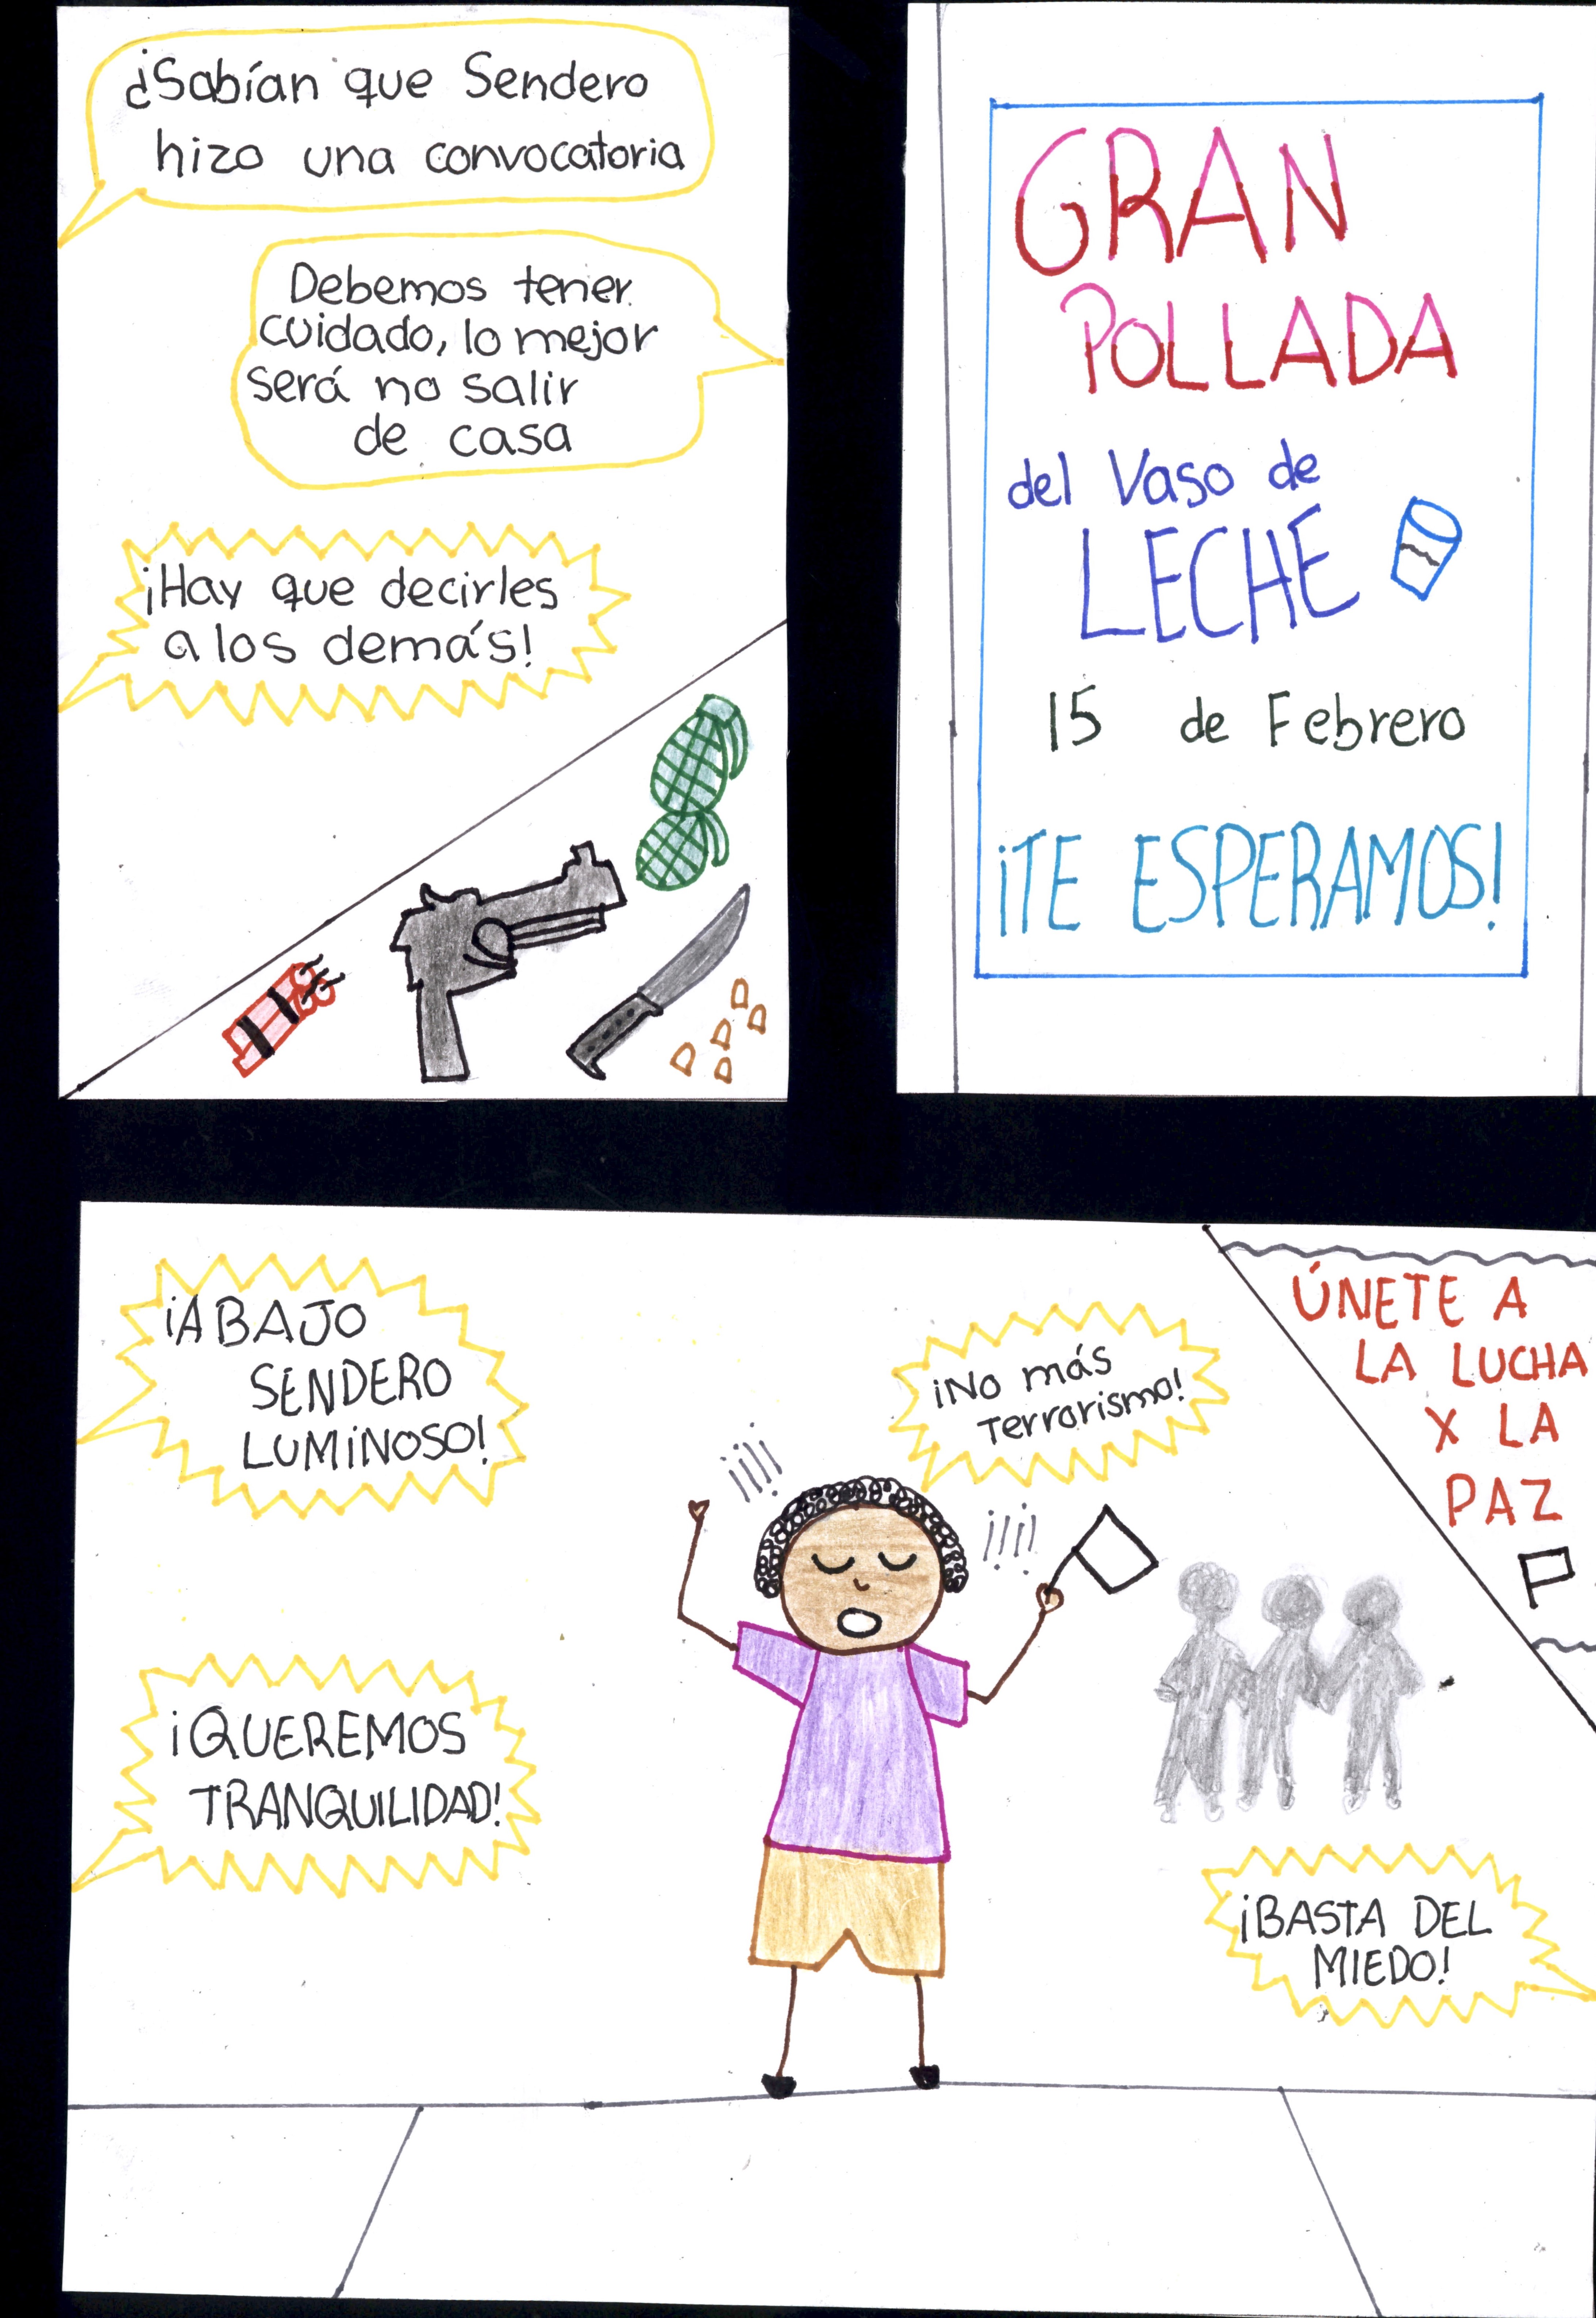 ¿Sabían que Sendero
hizo una convocatoria
Debemos tener
cuidado, lo mejor
será no salir
de casa
¡Hay que decirles
a los demás!
GRAN
POLLADA
del Vaso de
LECHE
15 de Febrero
¡TE ESPERAMOS!
¡ABAJO
SENDERO
LUMINOSO!
¡No más
Terrorismo!
ÚNETE A
LA LUCHA
X LA
PAZ
¡QUEREMOS
TRANQUILIDAD!
¡BASTA DEL
MIEDO!